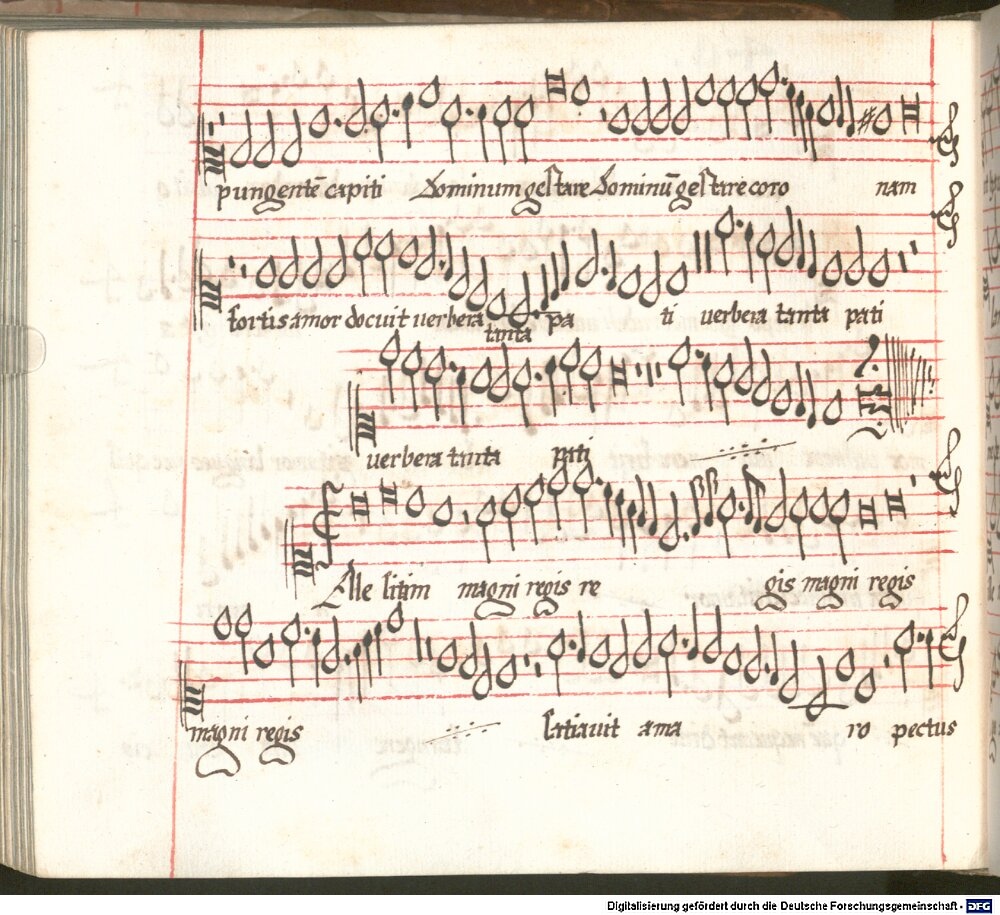 pungentē capiti Dominum gestare Dominū gestare coro nam
fortis amor docuit verbera tanta pa ti verbera tanta pati
verbera tanta pati
Ille sitim magni regis re gis magni regis
magni regis satiavit ama ro pectus
Digitalisierung gefördert durch die Deutsche Forschungsgemeinschaft - DFG